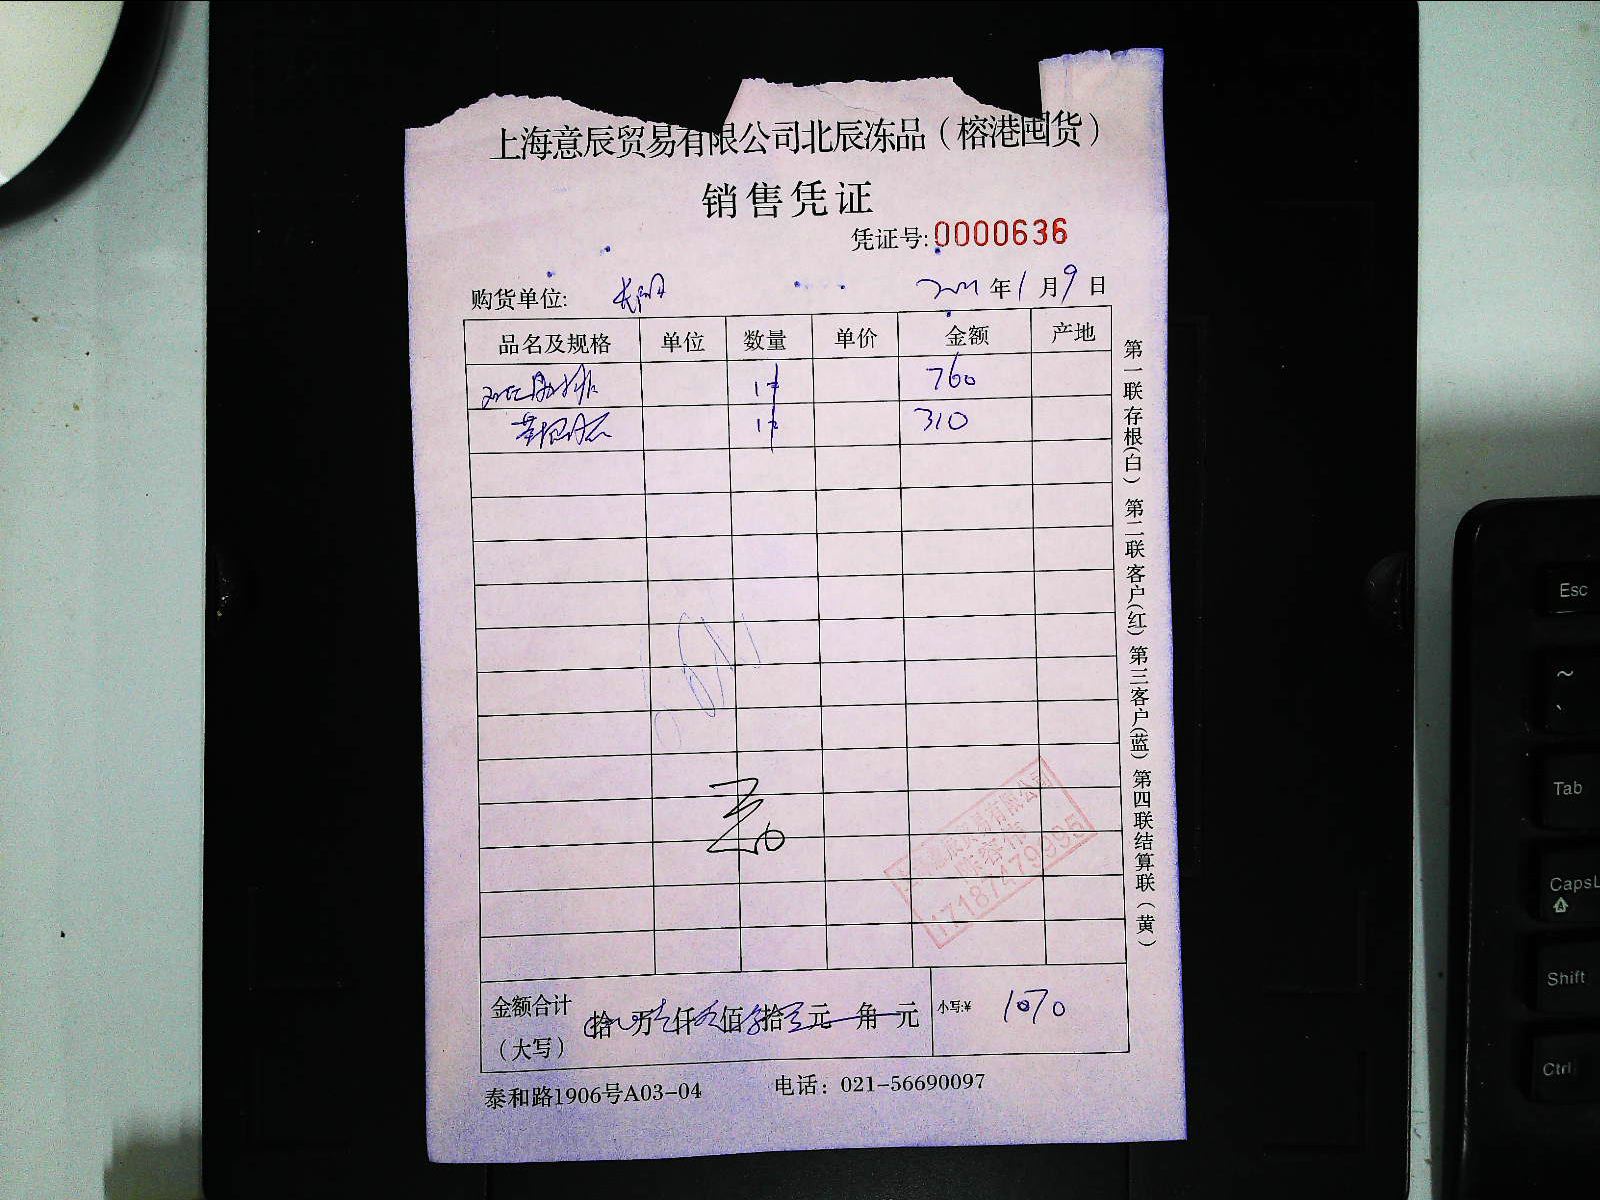 上海意辰贸易有限公司北辰冻品（榕港囤货）
销售凭证
凭证号:0000636
购货单位:
2021年1月9日
品名及规格 单位 数量 单价 金额 产地
1件 760
1件 310
金额合计
（大写）
拾 万 仟 佰 拾 元 角 元
小写:¥ 1070
泰和路1906号A03-04 电话：021-56690097
第一联存根(白) 第二联客户(红) 第三客户(蓝) 第四联结算联（黄）
贸易有限公司
17187479995
Esc
~
`
Tab
Caps
Shift
Ctrl